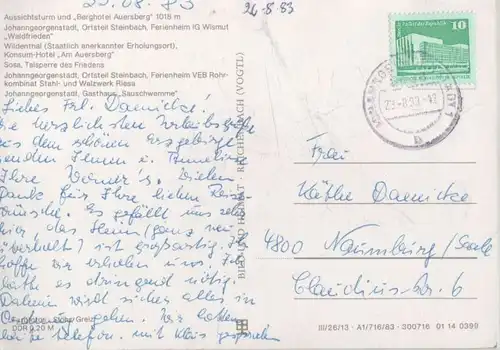 23.08.83
26-8.83
Aussichtsturm und "Berghotel Auersberg" 1018 m
Johanngeorgenstadt, Ortsteil Steinbach, Ferienheim IG Wismut
"Waldfrieden"
Wildenthal (Staatlich anerkannter Erholungsort),
Konsum-Hotel „Am Auersberg"
Sosa, Talsperre des Friedens
Johanngeorgenstadt, Ortsteil Steinbach, Ferienheim VEB Rohr-
kombinat Stahl- und Walzwerk Riesa
Johanngeorgenstadt, Gasthaus „Sauschwemme"
Liebes Frl. Damicke!
Die herzlichsten Urlaubsgrüße
aus dem schönen Erzgebirge
senden Ihnen u. Annelies
Ihre Vielen
Dank für Ihre lieben Reise-
wünsche. Es gefällt uns sehr
hier, das Heim (ganz neu
überholt) ist großartig. Ich
hoffe wir erholen uns, Ich
hatte es dringend nötig.
Daheim wird sicher alles in
Ordnung gehen. Wir hatten
heute Telefon. mit gesprochen
DDR 0,20 M
BILD UND HEIMAT · REICHENBACH (VOGTL)
10
DDR
23-8.83-17
b
Frau
Käthe Damicke
4800 Naumburg/Saale
Claudiusstr. 6
III/26/13 · A1/716/83 · 300716 01 14 0399